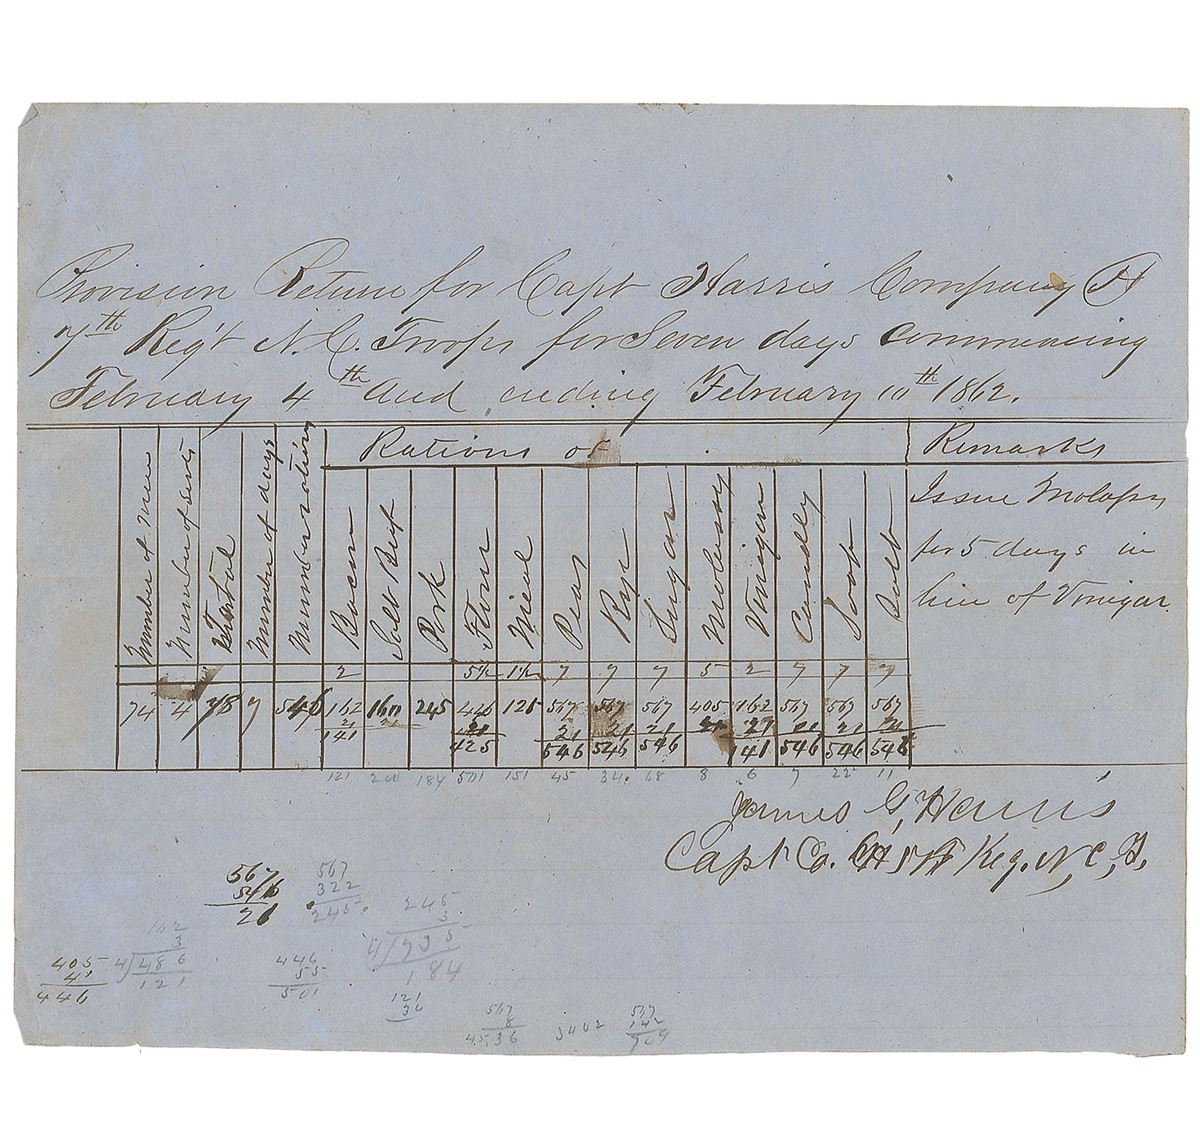 Provision Return for Capt Harris Company H
7th Reg't N.C. Troops for Seven days commencing
February 4th and ending February 10th 1862.
Number of men
Number of
Total
Number of days
Number rations
Rations of
Bacon
Salt Beef
Pork
Flour
Meal
Peas
Rye
Sugar
Molasses
Vinegar
Candles
Soap
Salt
Remarks
Issue Molasses
for 5 days in
lieu of Vinegar.
2 5½ 1½ 7 7 7 5 2 7 7 7
74 4 78 7 546 162 160 245 446 121 567 567 567 405 162 567 567 567
21 21 21 21 21 21 21 21 21 21
141 425 546 546 546 141 546 546 546
121 200 184 501 151 45 34 68 8 6 7 22 11
James G, Harris
Capt Co. H Reg. N, C, T,
567
546
21
567
322
245
245
3
4/735
184
162
3
4/486
121
405
41
446
446
55
501
121
30
567
8
45.36
3402
567
142
709